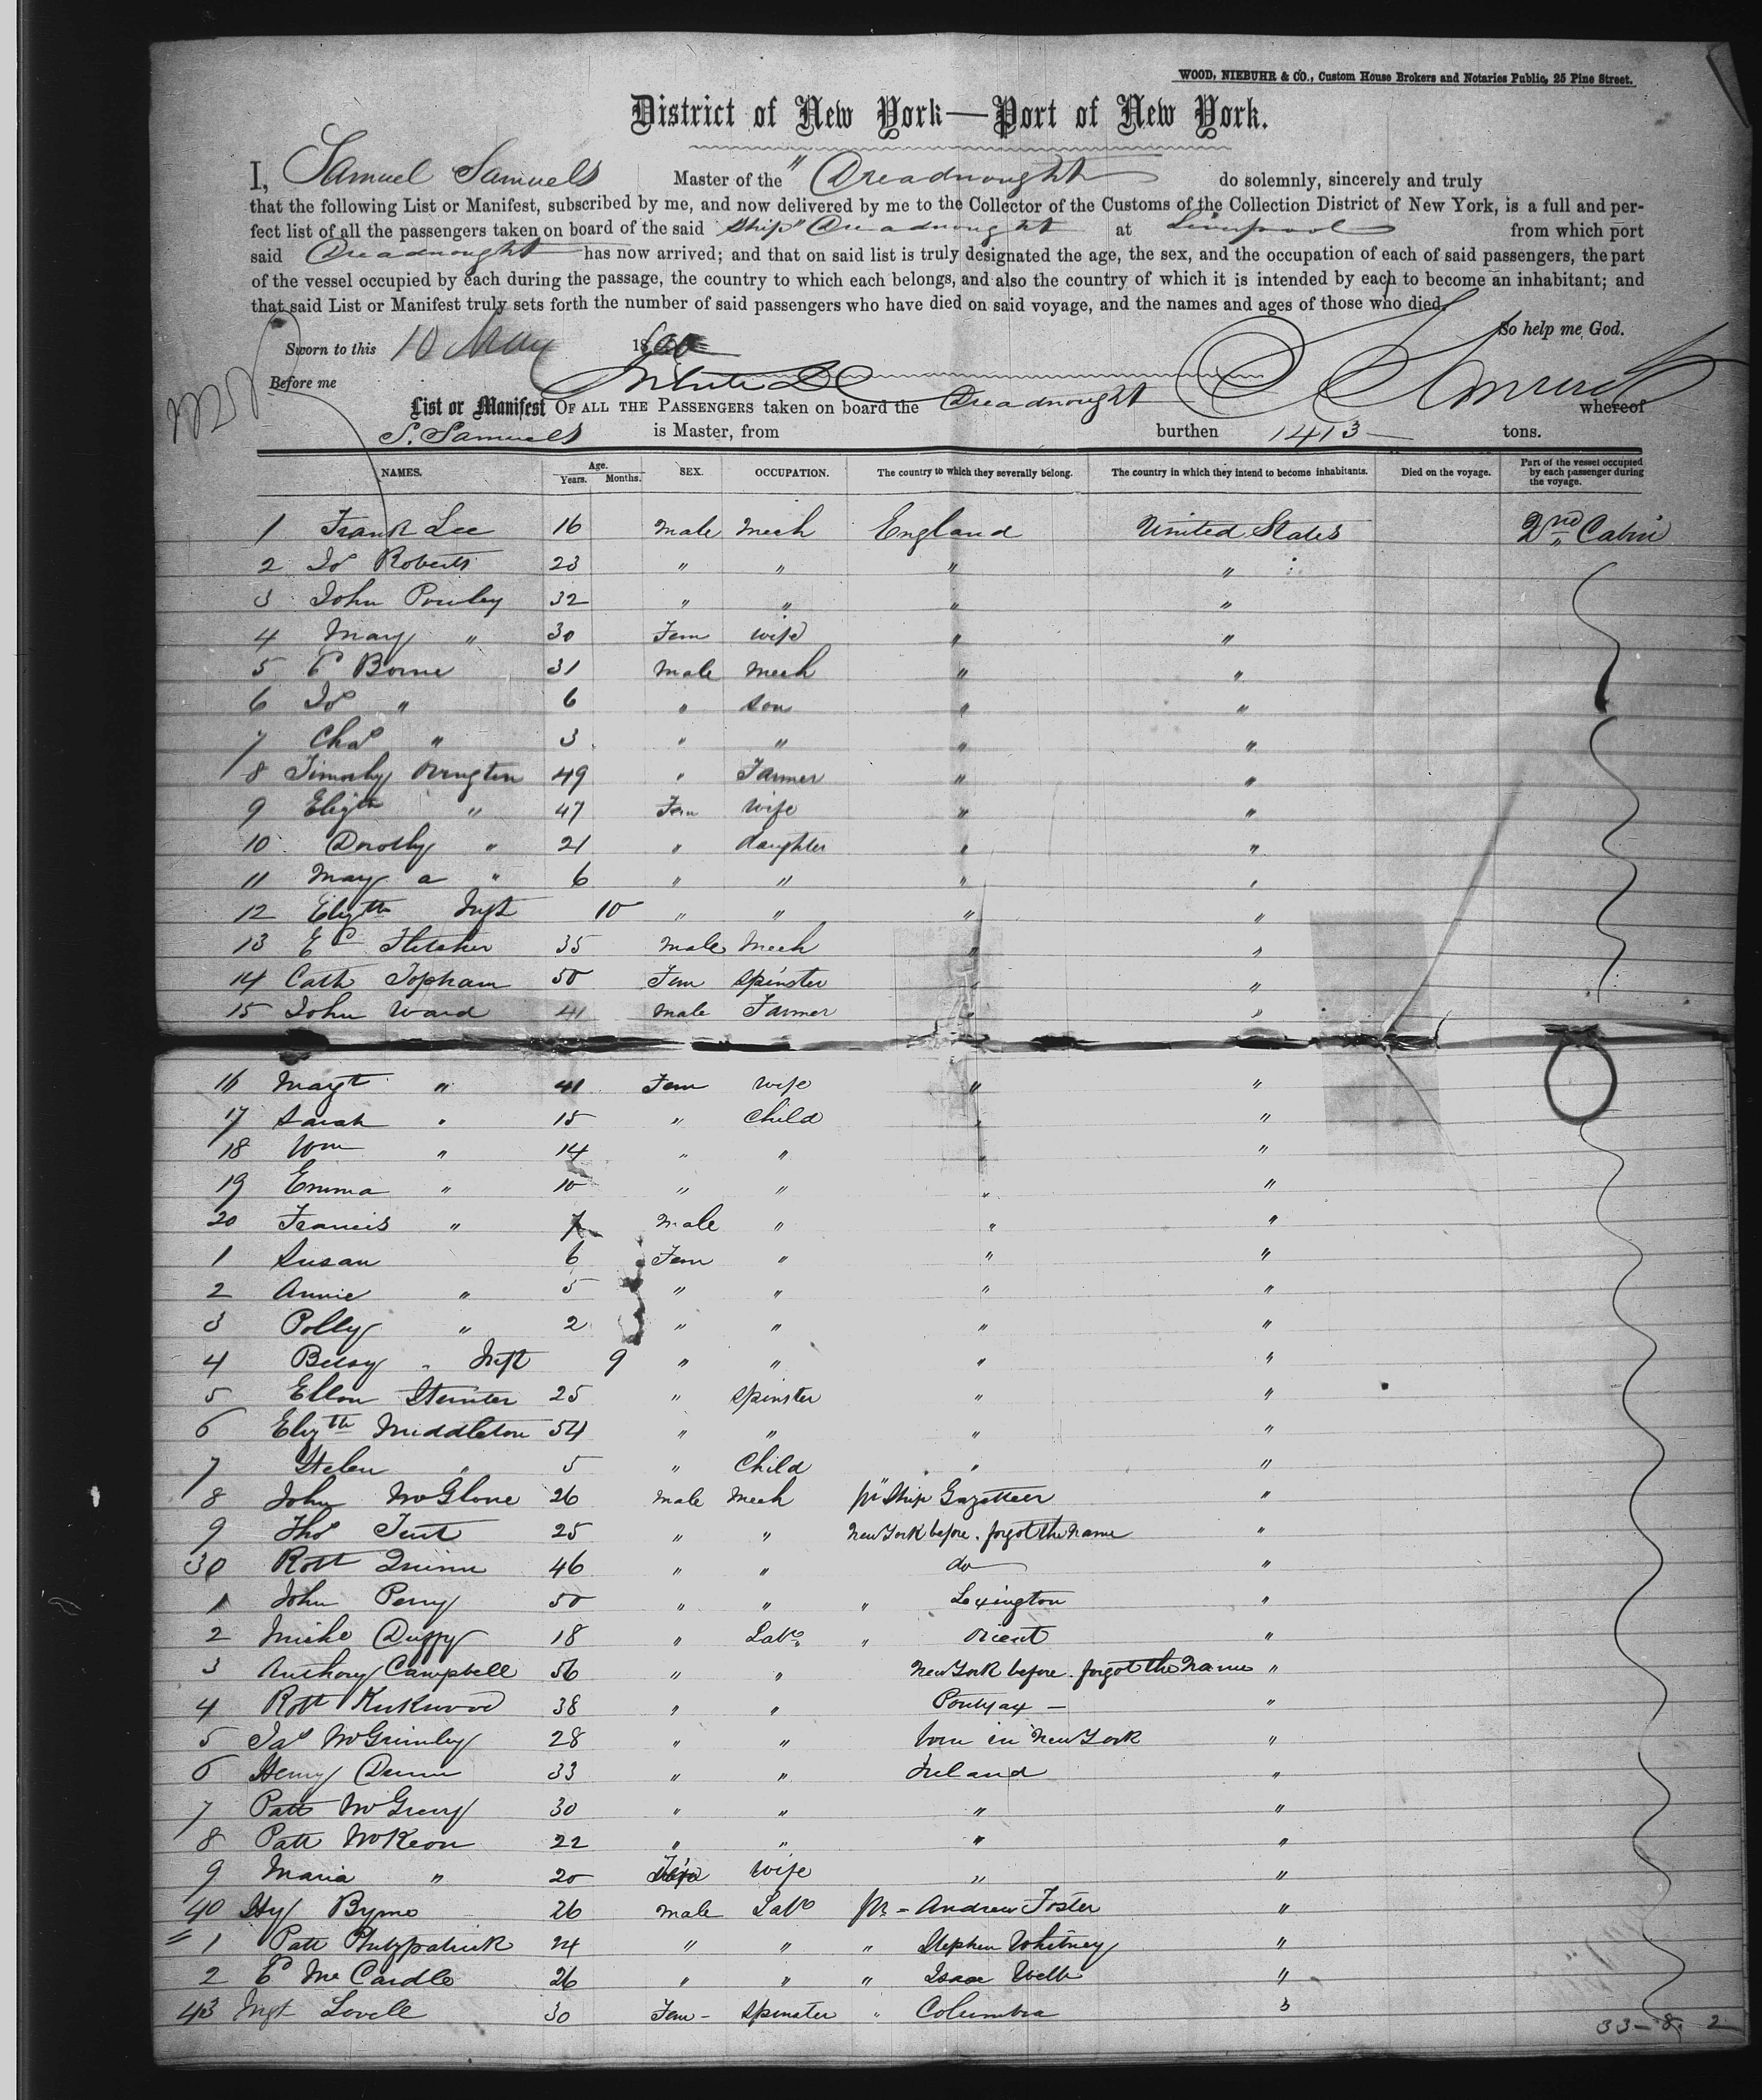 WOOD, NIEBUHR & CO., Custom House Brokers and Notaries Public, 25 Pine Street.
District of New York—Port of New York.
I, Samuel Samuels Master of the "Dreadnought do solemnly, sincerely and truly
that the following List or Manifest, subscribed by me, and now delivered by me to the Collector of the Customs of the Collection District of New York, is a full and per-
fect list of all the passengers taken on board of the said Ship "Dreadnought at Liverpool from which port
said Dreadnought has now arrived; and that on said list is truly designated the age, the sex, and the occupation of each of said passengers, the part
of the vessel occupied by each during the passage, the country to which each belongs, and also the country of which it is intended by each to become an inhabitant; and
that said List or Manifest truly sets forth the number of said passengers who have died on said voyage, and the names and ages of those who died.
So help me God.
Sworn to this 10 May 1860
Before me
List or Manifest OF ALL THE PASSENGERS taken on board the Dreadnought whereof
S. Samuels is Master, from burthen 1413 tons.
NAMES. Age. Years. Months. SEX. OCCUPATION. The country to which they severally belong. The country in which they intend to become inhabitants. Died on the voyage. Part of the vessel occupied by each passenger during the voyage.
1 Frank Lee 16 Male Mech England United States 2nd Cabin
2 Jos Roberts 23 " " " "
3 John Powley 32 " " " "
4 Mary " 30 Fem wife " "
5 Borne 31 Male Mech " "
6 Jos " 6 " son " "
7 Chas " 3 " " " "
8 Timothy Ovington 49 " Farmer " "
9 Elizth " 47 Fem wife " "
10 Dorothy " 21 " daughter " "
11 Mary a " 6 " " " "
12 Elizth Inft 10 " " " "
13 Ed Fletcher 35 Male Mech " "
14 Cath Topham 50 Fem Spinster " "
15 John Ward 41 Male Farmer " "
16 Margt " 41 Fem wife " "
17 Sarah " 15 " Child " "
18 Wm " 14 " " " "
19 Emma " 10 " " " "
20 Francis " 7 Male " " "
1 Susan 6 Fem " " "
2 Annie " 5 " " " "
3 Polly " 2 " " " "
4 Betsy " Inft 9 " " " "
5 Ellen 25 " Spinster " "
6 Elizth Middleton 54 " " " "
7 Helen " 5 " Child " "
8 John McGlone 26 Male Mech pr Ship Gazetteer "
9 Thos Tent 25 " " New York before. forgot the name "
30 Robt Quinn 46 " " do "
1 John Perry 50 " " " Lexington "
2 Micho Duffy 18 " Labr " Orient "
3 Anthony Campbell 56 " " New York before. forgot the name "
4 Robt Kirkwood 38 " " "
5 Jas McGrimley 28 " " born in New York "
6 Henry Dunn 33 " " Ireland "
7 Patt 30 " " " "
8 Patt McKeon 22 " " " "
9 Maria " 20 Fem wife " "
40 Hy Byrne 26 Male Labr pr - Andrew Foster "
1 Patt Fitzpatrick 24 " " " Stephen Whitney "
2 Ed McCardle 26 " " " Isaac Webb "
43 Mgt Lovell 30 Fem - Spinster " Columbia "
33 - 8. 2